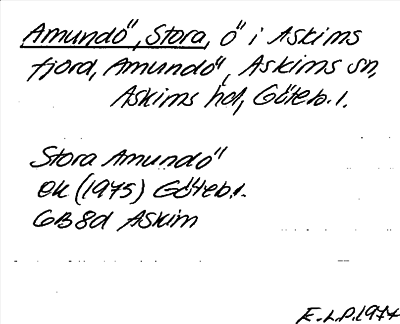 Amundö, Stora, ö i Askims
fjord, Amundö, Askims sn,
Askims hd, Göteb. l.
Stora Amundö
ek (1975) Göteb. l.
6B8d Askim
E.L.P. 1977